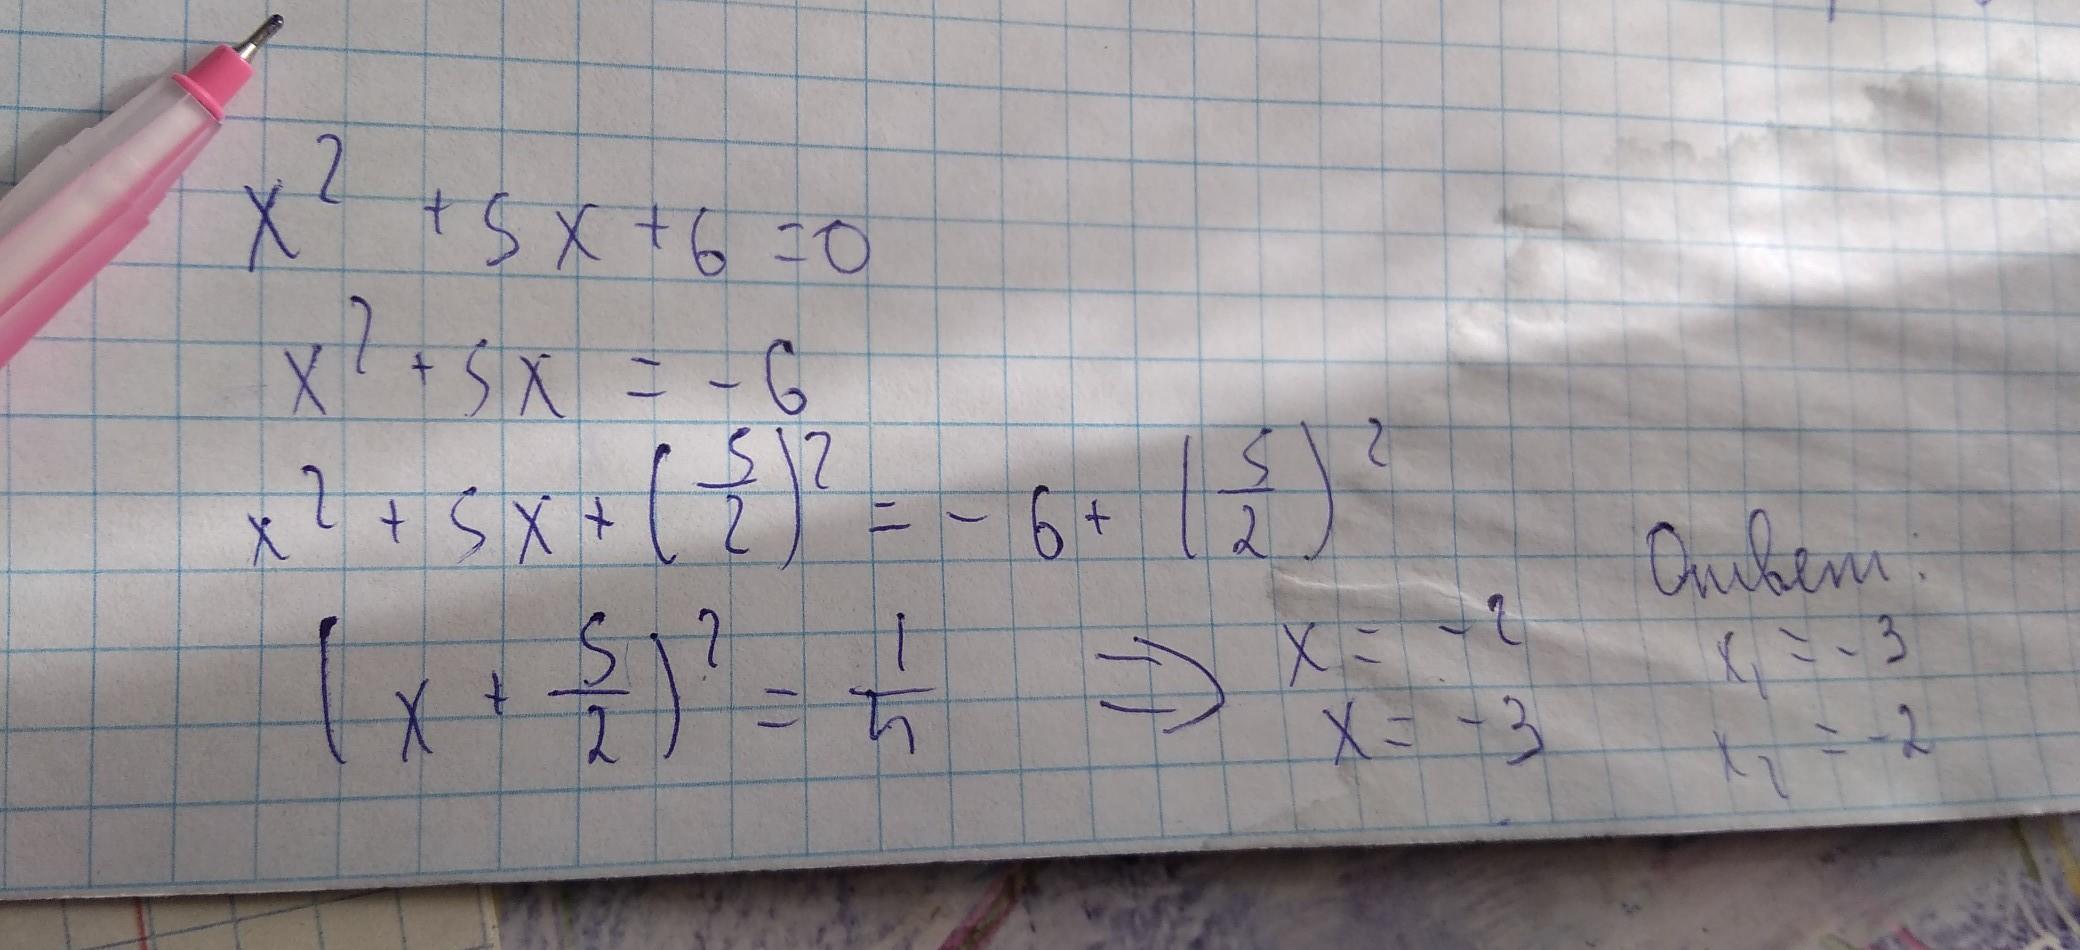 x² + 5x + 6 = 0
x² + 5x = -6
x² + 5x + (5/2)² = -6 + (5/2)²
(x + 5/2)² = 1/4 ⇒ x = -2
x = -3
Ответ:
x₁ = -3
x₂ = -2